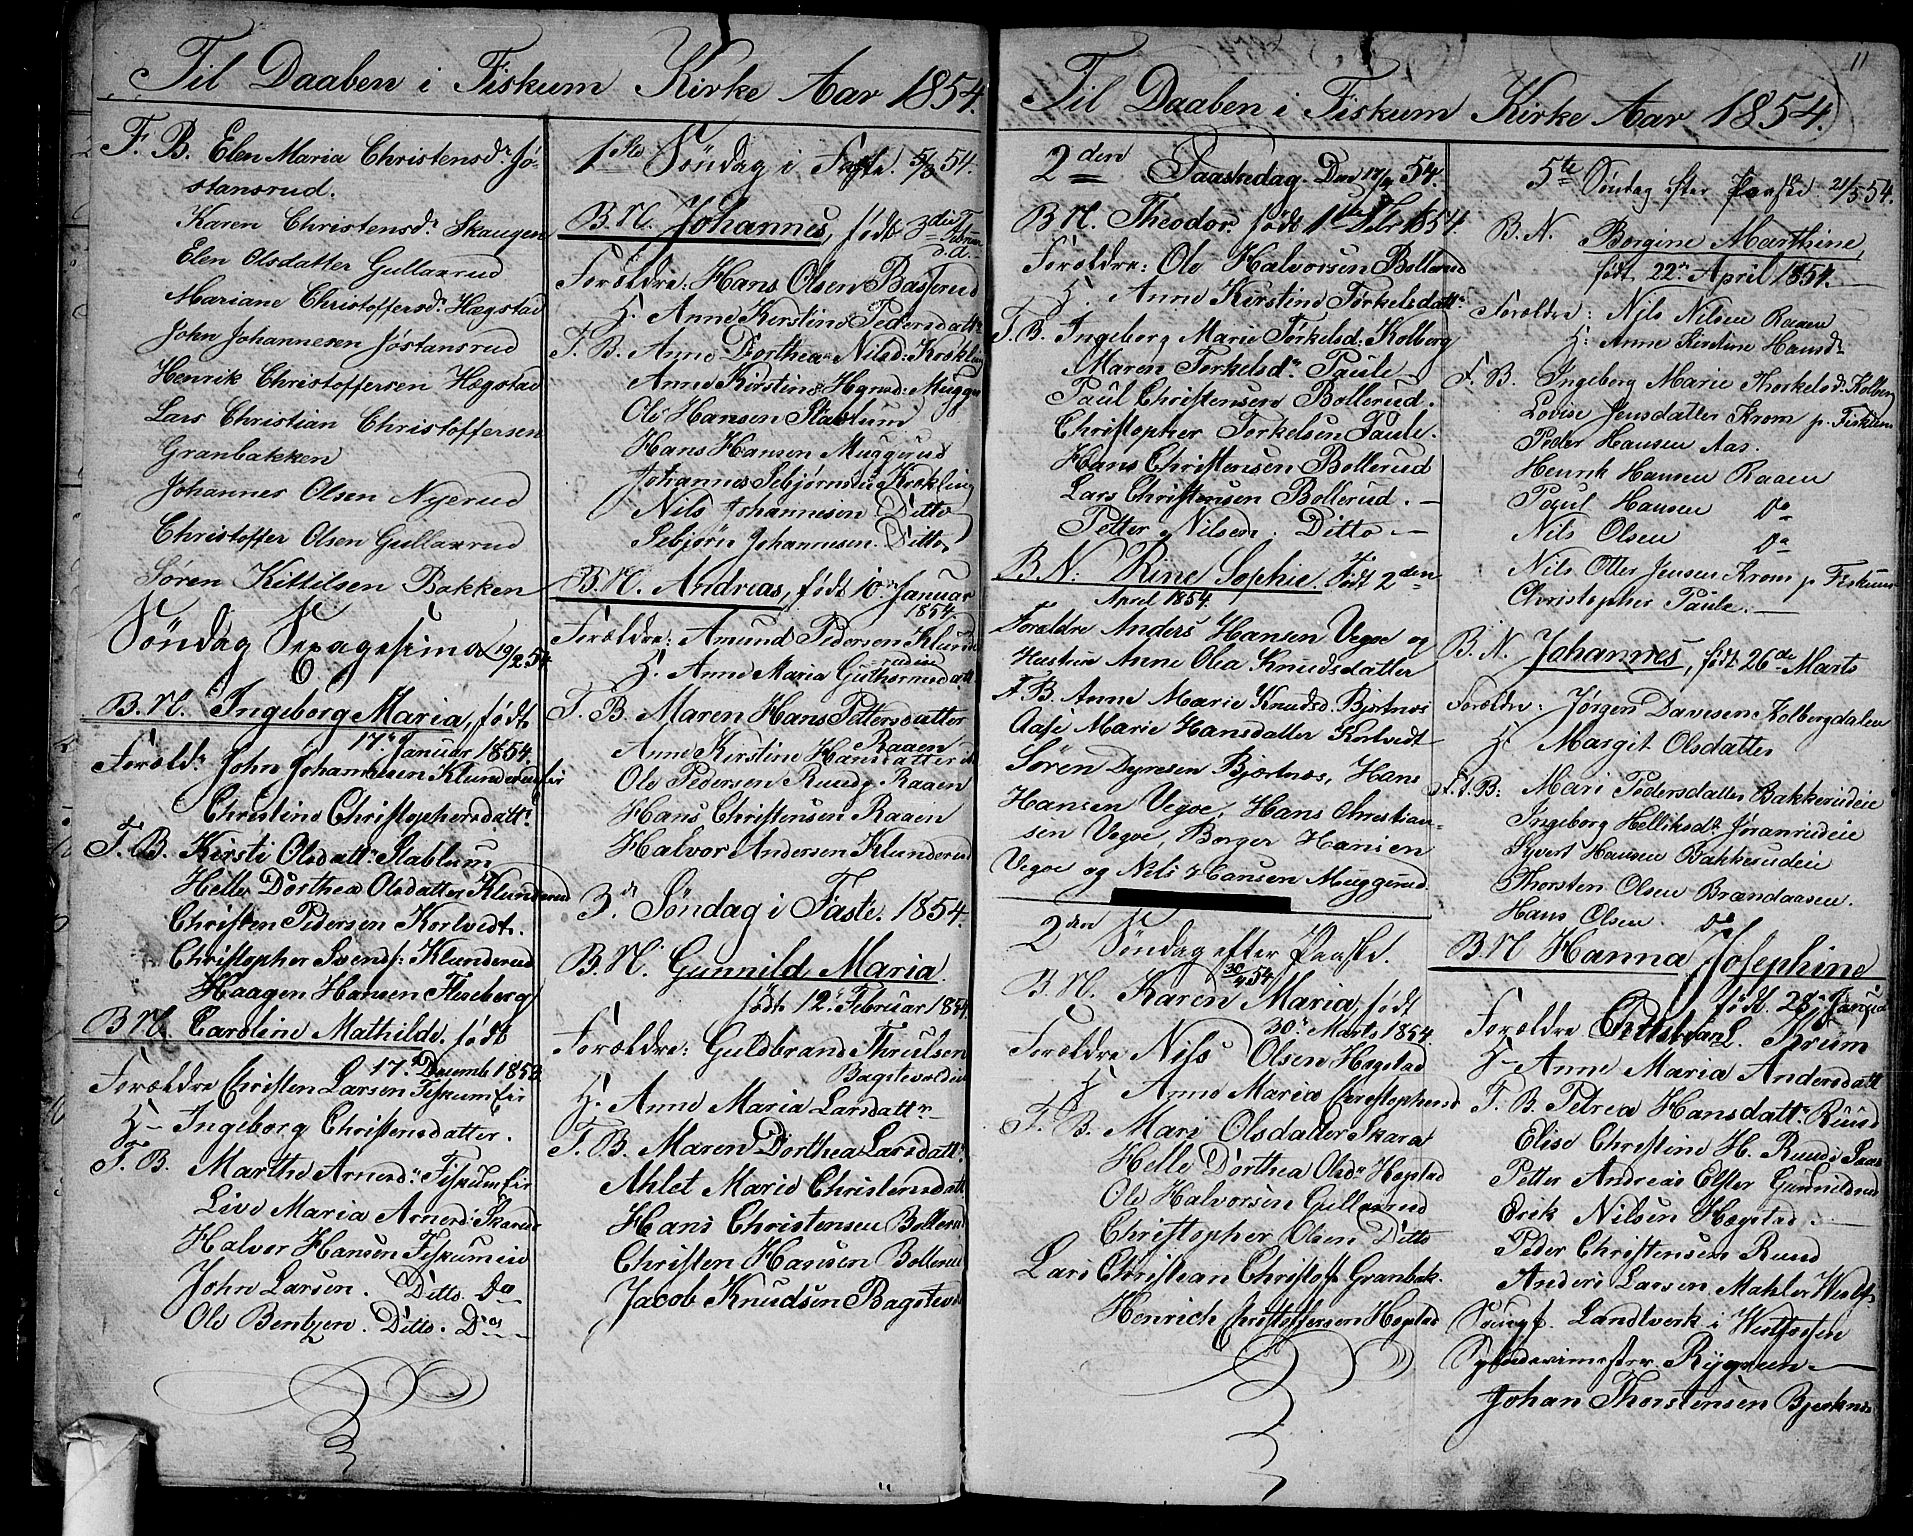 Til Daaben i Fiskum Kirke Aar 1854.
F. B. Elen Maria Christensdr. Jø-
stansrud.
Karen Christensdr. Skaugen
Elen Olsdatter Gullaarud
Mariane Christoffersdr. Hægstad
John Johannesen Jøstansrud
Henrik Christoffersen Hægstad
Lars Christian Christoffersen
Granbakken
Johannes Olsen Nyerud
Christoffer Olsen Gullaarud
Søren Kittilsen Bakken
Søndag Sexagesima 19/2 54
B. N. Ingeborg Maria, født
17. Januar 1854.
Foræld: John Johannesen Klunderudeie
Christine Christophersdattr.
F. B. Kirsti Olsdattr. Stablum
Helle Dorthea Olsdatter Klunderud
Christen Pedersen Kortvedt.
Christopher Svends: Klunderud
Haagen Hansen Fleseberg
B N. Caroline Mathilde, født
17. Decemb 1853.
Forældre Christen Larsen Fiskumeie
H- Ingeborg Christensdatter.
F. B. Marthe Arnesdr. Fiskumeie
Live Maria Arnesd: Skarud
Halvor Hansen Fiskumeie
John Larsen. Ditto. Do
Ole Bentzen. Ditto. Do
1ste Søndag i Faste. 5/3 54.
B. N. Johannes, født 3die Febr.
s.d.
Forældre: Hans Olsen Basserud
H. Anne Kirstine Pedersdattr
F. B. Anne Dorthea Nilsd: Krækling
Anne Kirstine Hansd: Muggerud
Ole Hansen Stablum
Hans Hansen Muggerud
Johannes Sebjørnsen Krækling
Nils Johannesen Ditto
Sebjørn Johannesen. Ditto
B. N. Andreas, født 10. Januar
1854.
Forældre: Amund Pedersen Klunde-
rudeie
H. Anne Maria Guthormsdatt
F. B. Maren Hans Pettersdatter
Raaen
Anne Kirstine Hansdatter
Ole Pedersen Ruud p. Raaen
Hans Christensen Raaen
Halvor Andersen Klunderud
3. Søndag i Faste. 1854.
B. N. Gunnild Maria
født 12. Februar 1854
Forældre: Guldbrand Thrulsen
Bagstevoldeie
H. Anne Maria Larsdattr
F. B. Maren Dorthea Larsdattr.
Ahlet Marie Christensdatt
Hans Christensen Bollerud
Christen Hansen Bollerud
Jacob Knudsen Bagstevold
11
Til Daaben i Fiskum Kirke Aar 1854.
2den Paaskedag. Den 17/4 54.
B N. Theodor, født 1ste Febr 1854.
Forældre: Ole Halvorsen Bollerud
H. Anne Kirstine Torkelsdattr
F. B. Ingeborg Marie Torkelsd: Kolberg
Maren Torkelsdr. Paule
Paul Christensen Bollerud.
Christopher Torkelsen Paule.
Hans Christensen Bollerud
Lars Christensen Bollerud.
Petter Nilsen. Ditto
B. N. Rine Sophie. født 2den
April 1854.
Forældre Anders Hansen Vegoe og
Hustru Anne Olea Knudsdatter
F B Anne Marie Knudsd Bjørtnes
Aase Marie Hansdatter Kortvedt
Søren Dyresen Bjørtnes, Hans
Hansen Vegoe, Hans Christian-
sen Vegoe, Borger Hansen
Vegoe og Nils Hansen Muggerud
2den Søndag efter Paaske.
30/4 54
B. N. Karen Maria, født
30. Marts 1854.
Forældre Nils Olsen Hægstad
H Anne Maria Christophersd
F. B. Mari Olsdatter Skarat
Helle Dorthea Olsdr. Hægstad
Ole Halvorsen Gullaarud
Christopher Olsen Ditto
Lars Christian Christoff. Granbak.
Henrich Christoffersen Hægstad
5te Søndag efter Paaske 21/5 54.
B. N. Borgine Marthine,
født 22. April 1854.
Forældre: Nils Nilsen Raaen
H: Anne Kirstine Hansdr.
F. B. Ingeborg Marie Thorkelsd. Kolberg
Lovise Jensdatter Krom p. Fiskum
Peder Hansen Aas.
Henrik Hansen Raaen
Poul Hansen do
Nils Olsen do
Nils Otter Jensen Krom p Fiskum
Christopher Paule.
B. N. Johannes, født 26de Marts
Forældre: Jørgen Davesen Kolbergdalen
H. Margit Olsdatter
F. B: Mari Pedersdatter Bakkerudeie
Ingeborg Helliksdr. Jøranrudeie
Syvert Hansen Bakkerudeie
Thorsten Olsen Brændaasen.
Hans Olsen. do
B N Hanna Josephine
født 28. Januar
Forældre Christian L. Krüm
H- Anne Maria Andersdatt
F. B. Petrea Hansdattr. Ruud
Elise Christine H. Ruud
Petter Andreas Elster Gunnildrud
Erik Nilsen Hægstad.
Peder Christensen Ruud
Anders Larsen Mahler Westf
Landverk i Westfossen
Rygreen
Johan Thorstensen Bjerknes